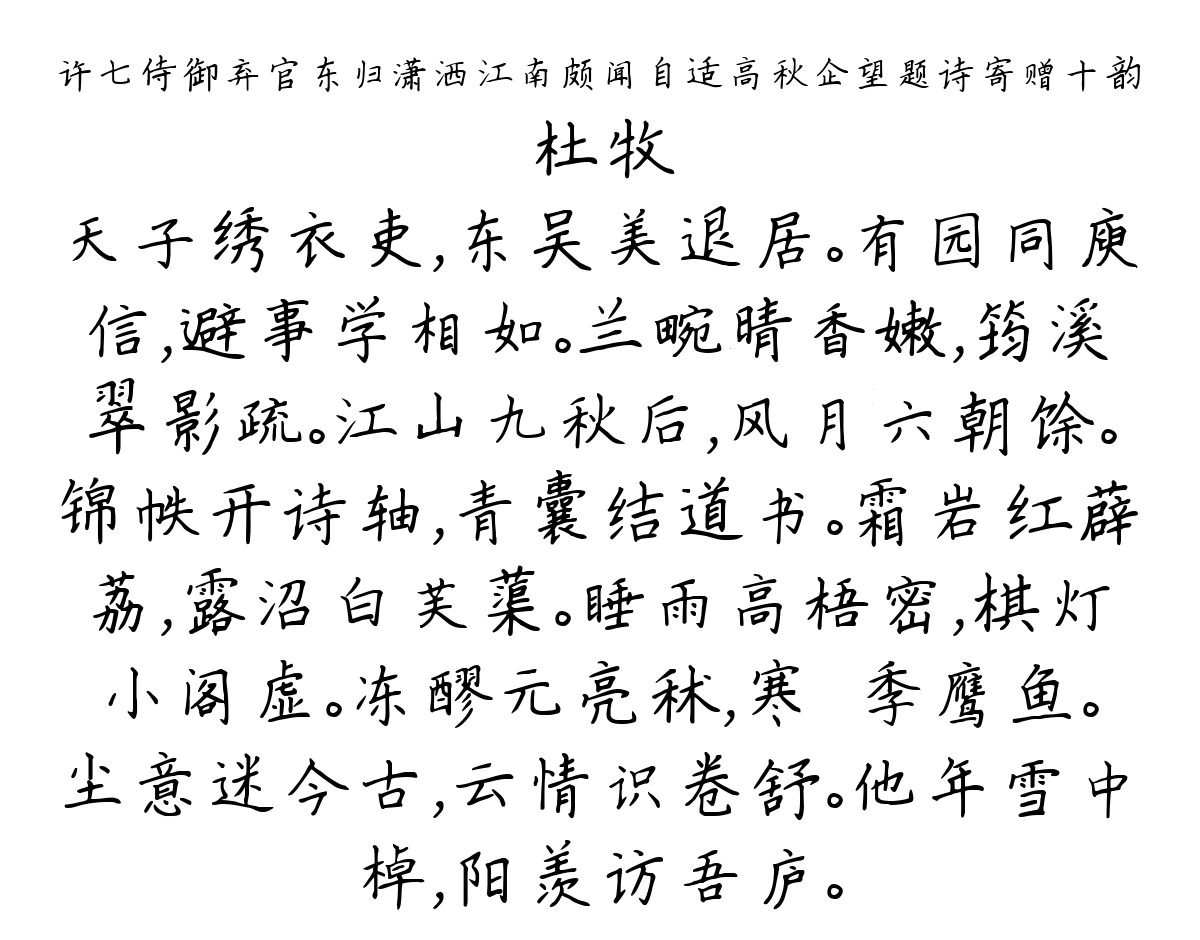 许七侍御弃官东归潇洒江南颇闻自适高秋企望题诗寄赠十韵
杜牧
天子绣衣吏,东吴美退居。有园同庾
信,避事学相如。兰畹晴香嫩,筠溪
翠影疏。江山九秋后,风月六朝馀。
锦帙开诗轴,青囊结道书。霜岩红薜
荔,露沼白芙蕖。睡雨高梧密,棋灯
小阁虚。冻醪元亮秫,寒 季鹰鱼。
尘意迷今古,云情识卷舒。他年雪中
棹,阳羡访吾庐。